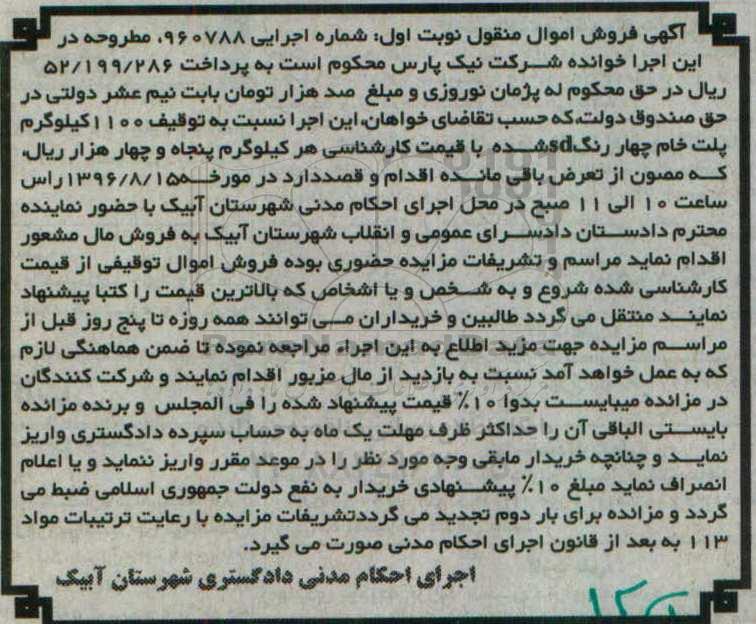 آگهی فروش اموال منقول نوبت اول: شماره اجرایی ۹۶۰۷۸۸، مطروحه در
این اجرا خوانده شرکت نیک پارس محکوم است به پرداخت ۵۲/۱۹۹/۲۸۶
ریال در حق محکوم له پژمان نوروزی و مبلغ صد هزار تومان بابت نیم عشر دولتی در
حق صندوق دولت، که حسب تقاضای خواهان، این اجرا نسبت به توقیف ۱۱۰۰ کیلوگرم
پلت خام چهار رنگ sd شده با قیمت کارشناسی هر کیلوگرم پنجاه و چهار هزار ریال،
که مصون از تعرض باقی مانده اقدام و قصد دارد در مورخه ۱۳۹۶/۸/۱۵ راس
ساعت ۱۰ الی ۱۱ صبح در محل اجرای احکام مدنی شهرستان آبیک با حضور نماینده
محترم دادستان دادسرای عمومی و انقلاب شهرستان آبیک به فروش مال مشعور
اقدام نماید مراسم و تشریفات مزایده حضوری بوده فروش اموال توقیفی از قیمت
کارشناسی شده شروع و به شخص و یا اشخاص که بالاترین قیمت را کتبا پیشنهاد
نمایند منتقل می گردد طالبین و خریداران می توانند همه روزه تا پنج روز قبل از
مراسم مزایده جهت مزید اطلاع به این اجراء مراجعه نموده تا ضمن هماهنگی لازم
که به عمل خواهد آمد نسبت به بازدید از مال مزبور اقدام نمایند و شرکت کنندگان
در مزائده میبایست بدوا ۱۰٪ قیمت پیشنهاد شده را فی المجلس و برنده مزائده
بایستی الباقی آن را حداکثر ظرف مهلت یک ماه به حساب سپرده دادگستری واریز
نماید و چنانچه خریدار مابقی وجه مورد نظر را در موعد مقرر واریز ننماید و یا اعلام
انصراف نماید مبلغ ۱۰٪ پیشنهادی خریدار به نفع دولت جمهوری اسلامی ضبط می
گردد و مزائده برای بار دوم تجدید می گردد تشریفات مزایده با رعایت ترتیبات مواد
۱۱۳ به بعد از قانون اجرای احکام مدنی صورت می گیرد.
اجرای احکام مدنی دادگستری شهرستان آبیک